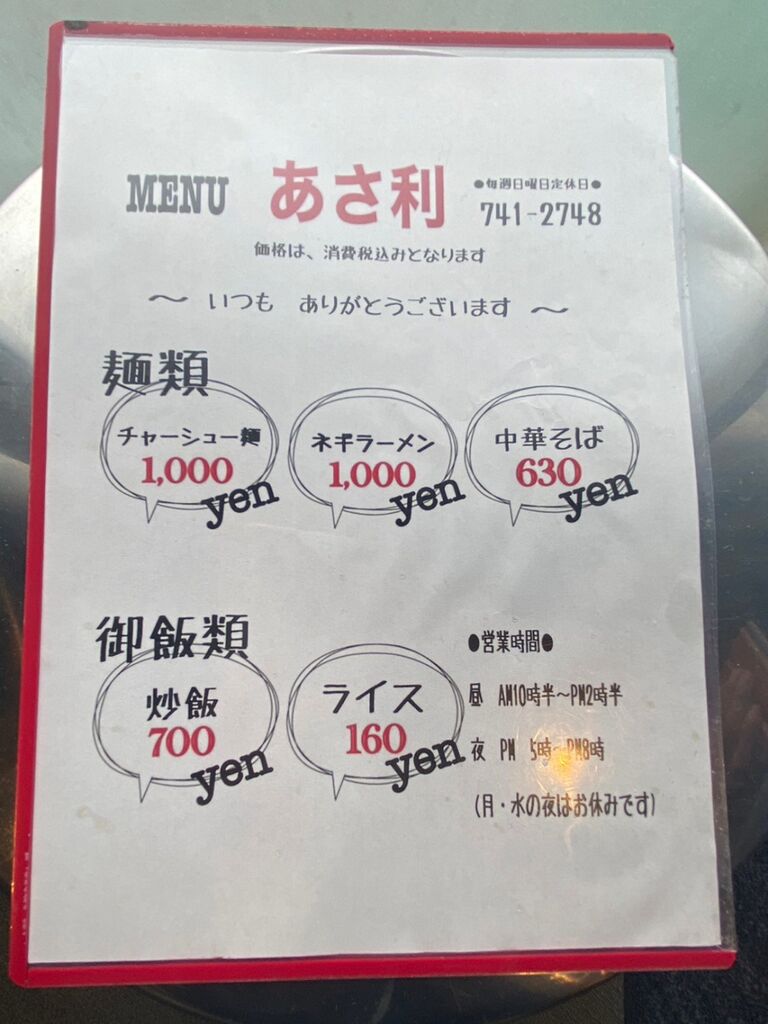 MENU あさ利
●毎週日曜日定休日●
741-2748
価格は、消費税込みとなります
～ いつも ありがとうございます ～
麺類
チャーシュー麺
1,000
yen
ネギラーメン
1,000
yen
中華そば
630
yen
御飯類
炒飯
700
yen
ライス
160
yen
●営業時間●
昼 AM10時半～PM2時半
夜 PM 5時～PM8時
(月・水の夜はお休みです)